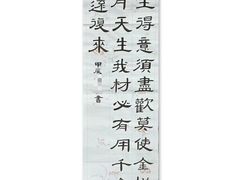 得意須盡歡莫使金樽
月天生我材必有用千
還復來
甲辰
書